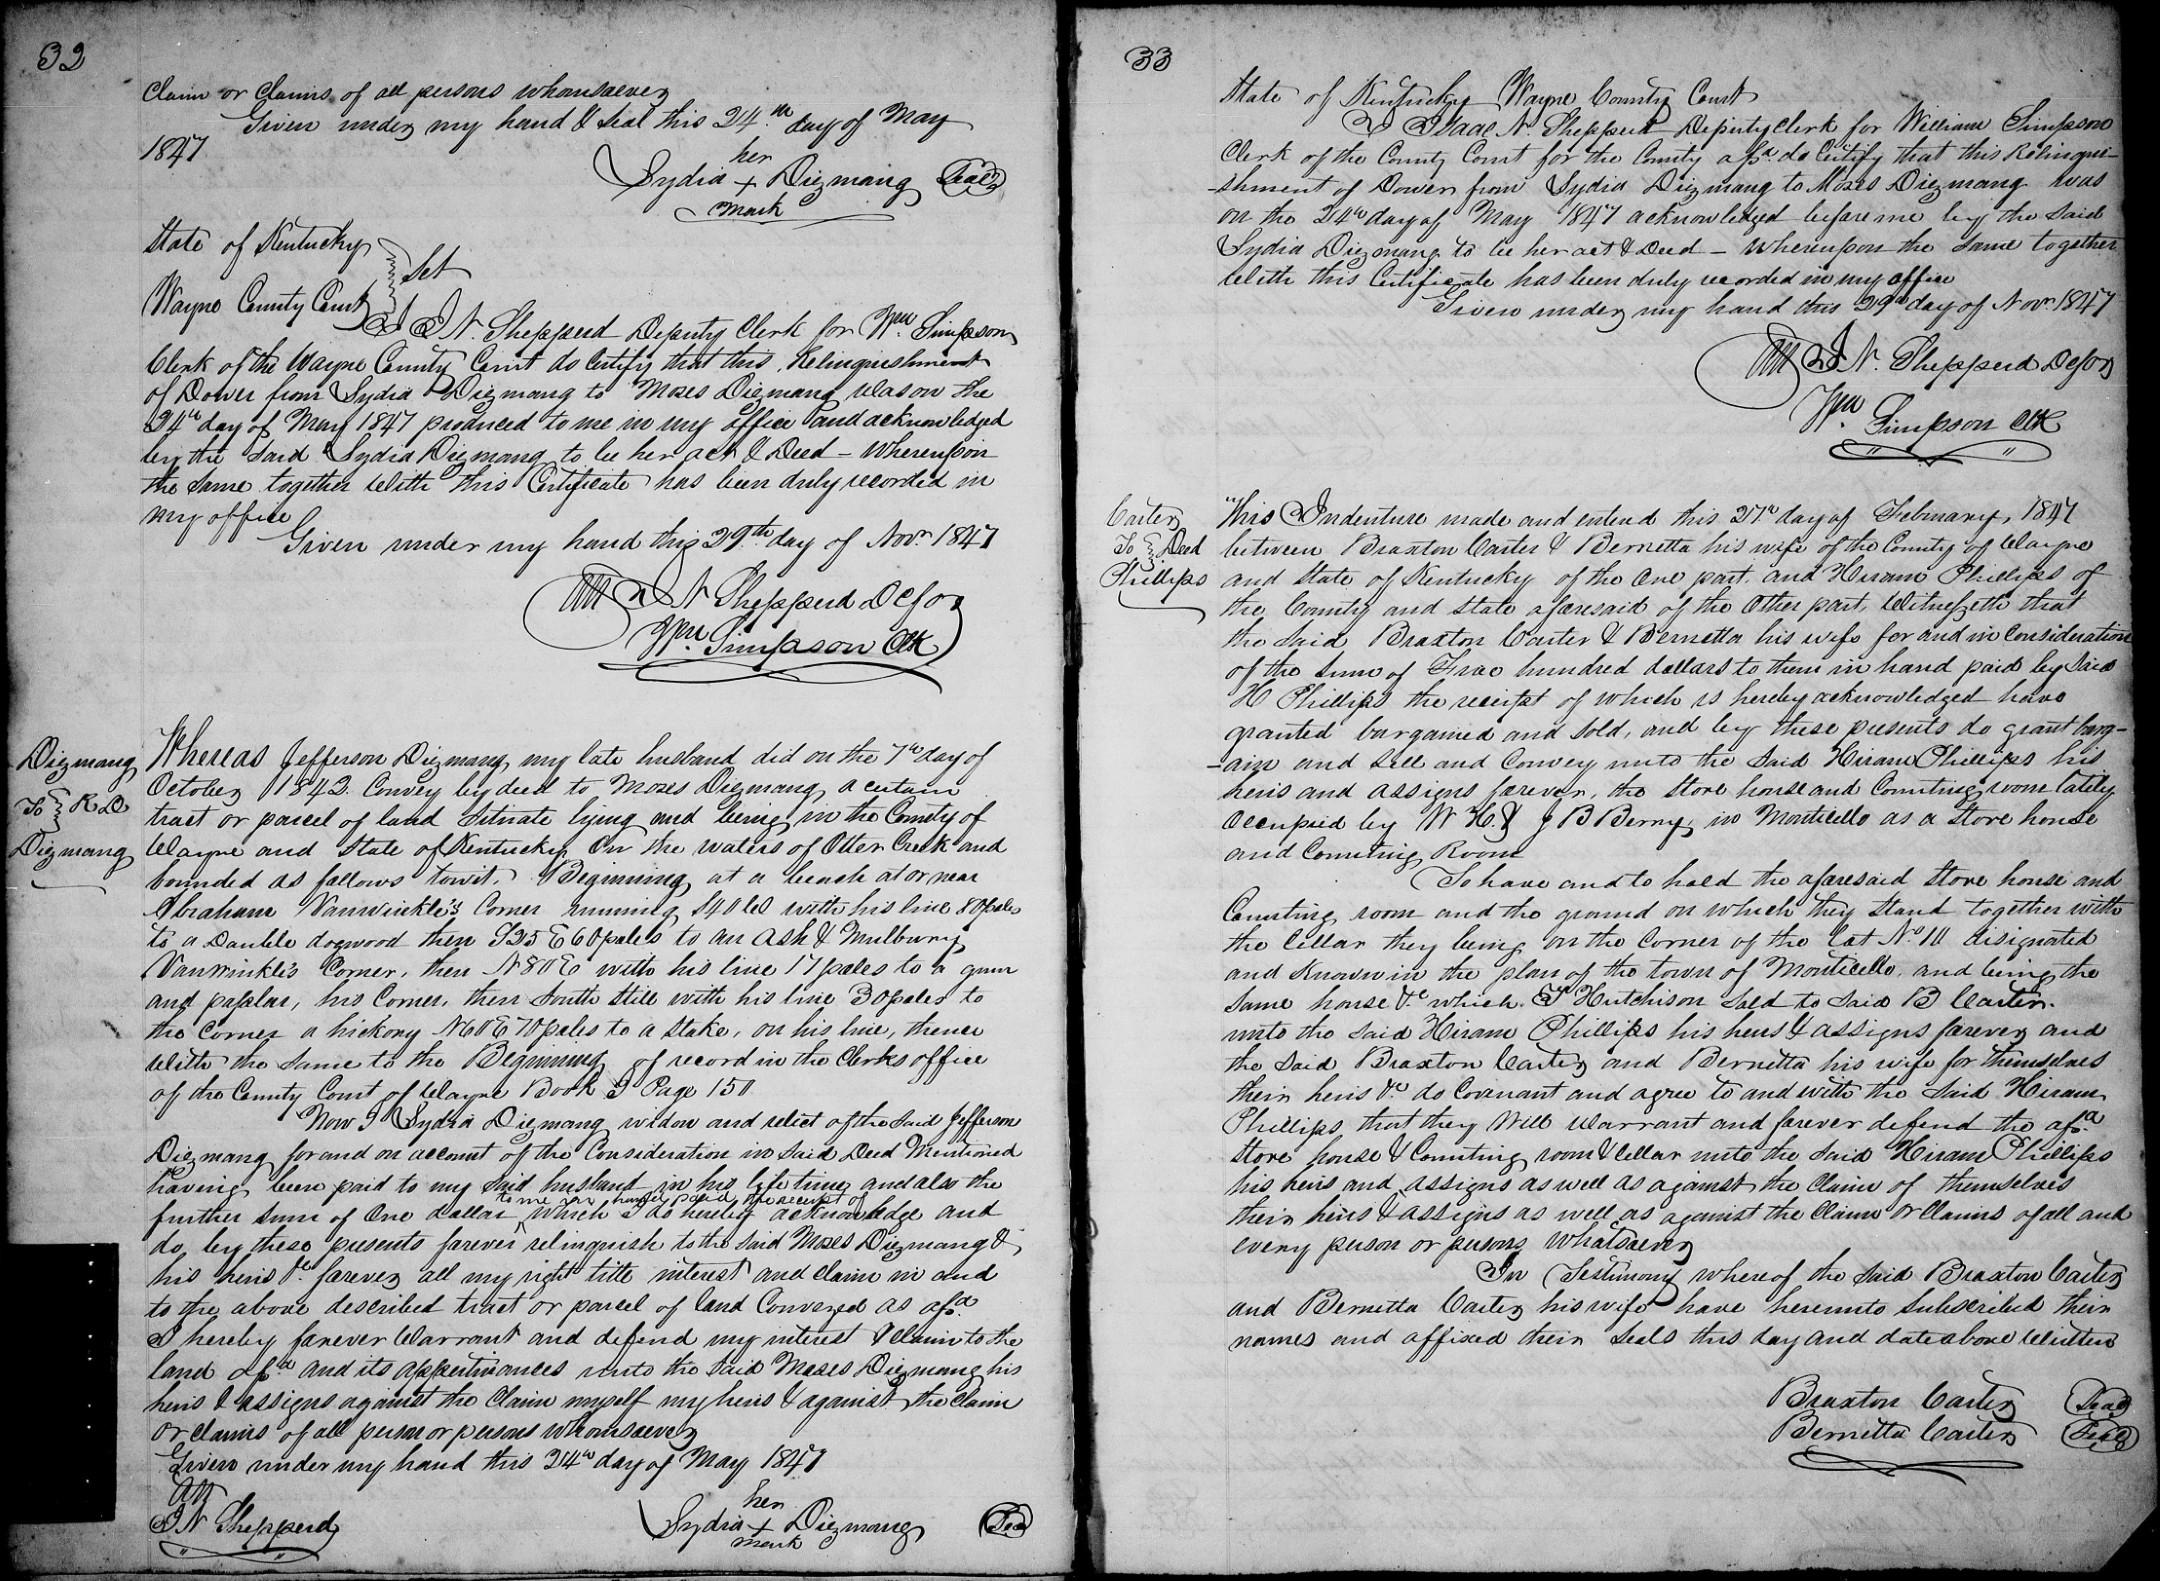 32
Claim or Claims of all persons whomsoever
Given under my hand & Seal this 24th day of May
1847
her
Lydia + Dizmang Seal
mark
State of Kentucky
Sct
Wayne County Court
I I N. Shepperd Deputy Clerk for Wm Simpson
Clerk of the Wayne County Court do Certify that this Relinquishment
of Dower from Lydia Dizmang to Moses Dizmang was on the
24th day of May 1847 produced to me in my office and acknowledged
by the Said Lydia Dizmang to be her act & Deed – Whereupon
the Same together With this Certificate has been duly recorded in
my office
Given under my hand this 29th day of Novr 1847
Att I N Shepperd DC for
Wm Simpson Clk
Dizmang
To R D
Dizmang
Whereas Jefferson Dizmang my late husband did on the 7th day of
October 1842 Convey by deed to Moses Dizmang a certain
tract or parcel of land Situate lying and being in the County of
Wayne and State of Kentucky On the waters of Otter Creek and
bounded as follows towit. Beginning at a beach at or near
Abraham Vanwinkle's Corner running S40W with his line 80poles
to a Double dogwood then S35 E 60poles to an Ash & Mulburry
Vanwinkle's Corner, then N80E with his line 17poles to a gum
and poplar, his Corner, then South Still with his line 30poles to
the Corner a hickory N60E 70poles to a Stake, on his line, thence
With the Same to the Beginning of record in the Clerks office
of the County Court of Wayne Book I Page 150
Now I Lydia Dizmang widow and relict of the Said Jefferson
Dizmang for and on account of the Consideration in Said Deed Mentioned
having been paid to my Said husband in his life time and also the
to me in hand paid the receipt of
further Sum of One dollar which I do hereby acknowledge and
do by these presents forever relinquish to the Said Moses Dizmang &
his heirs &c forever all my right title interest and Claim in and
to the above described tract or parcel of land Conveyed as afsd
I hereby forever Warrant and defend my interest & Claim to the
land afsd and its appertinances unto the Said Moses Dizmang his
heirs & assigns against the Claim myself my heirs & against the Claim
or Claims of all person or persons Whomsoever
Given under my hand this 24th day of May 1847
Att
I N Shepperd
her
Lydia + Dizmang Seal
mark
33
State of Kentucky Wayne County Court
I Isaac N. Shepperd Deputy Clerk for William Simpson
Clerk of the County Court for the County afsd do Certify that this Relinqui-
-shment of Dower from Lydia Dizmang to Moses Dizmang was
on the 24th day of May 1847 acknowledged before me by the Said
Lydia Dizmang to be her act & Deed – Whereupon the Same together
With this Certificate has been duly recorded in my office
Given under my hand this 29th day of Novr 1847
Att I N. Shepperd DC for
Wm Simpson Clk
Carter
To Deed
Phillips
This Indenture made and entered this 27th day of February, 1847
between Braxton Carter & Bernetta his wife of the County of Wayne
and State of Kentucky of the One part and Hiram Phillips of
the County and State aforesaid of the Other part, Witnesseth that
the Said Braxton Carter & Bernetta his wife for and in Consideration
of the Sum of hundred dollars to them in hand paid by Said
H Phillips the receipt of which is hereby acknowledged have
granted bargained and Sold, and by these presents do grant barg-
-ain and Sell and Convey unto the Said Hiram Phillips his
heirs and assigns forever, the Store house and Counting room lately
Occupied by W H. & J B Berry in Monticello as a Store house
and Counting Room
To have and to hold the aforesaid Store house and
Counting room and the ground on which they Stand together with
the Cellar they being on the Corner of the Lot No 10 disignated
and Known in the plan of the town of Monticello, and being the
Same house &c which Hutchison Sold to Said B Carter.
unto the Said Hiram Phillips his heirs & assigns forever and
the Said Braxton Carter and Bernetta his wife for themselves
their heirs &c do Covenant and agree to and with the Said Hiram
Phillips that they Will Warrant and forever defend the afsd
Store house & Counting room & Cellar unto the Said Hiram Phillips
his heirs and assigns as well as against the Claim of themselves
their heirs & assigns as well as against the Claim or Claims of all and
every person or persons Whatsoever
In Testimony whereof the Said Braxton Carter
and Bernetta Carter his wife have hereunto Subscribed their
names and affixed their Seals this day and date above Written
Braxton Carter Seal
Bernetta Carter Seal